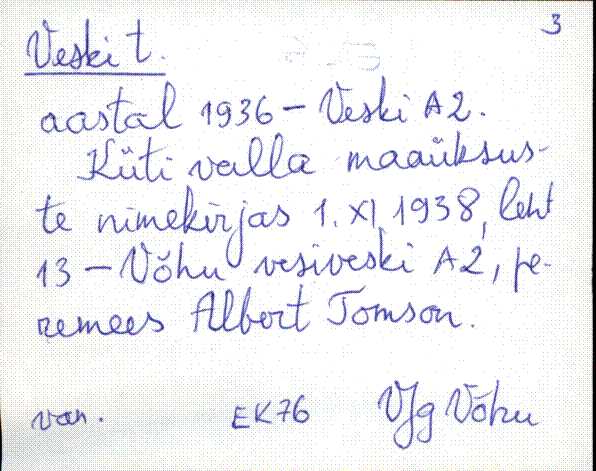 3
Veski t.
aastal 1936 – Veski A2.
Küti valla maaüksus-
te nimekirjas 1. XI 1938, leht
13 – Võhu vesiveski A2, pe-
remees Albert Tomson.
van. EK76 VJg Võhu